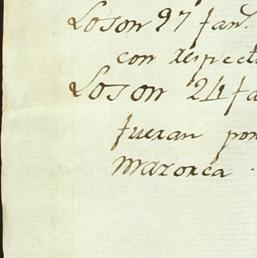 Loson 97 fan.
con respect
Loson 24 fa
fueran por
mazorca .